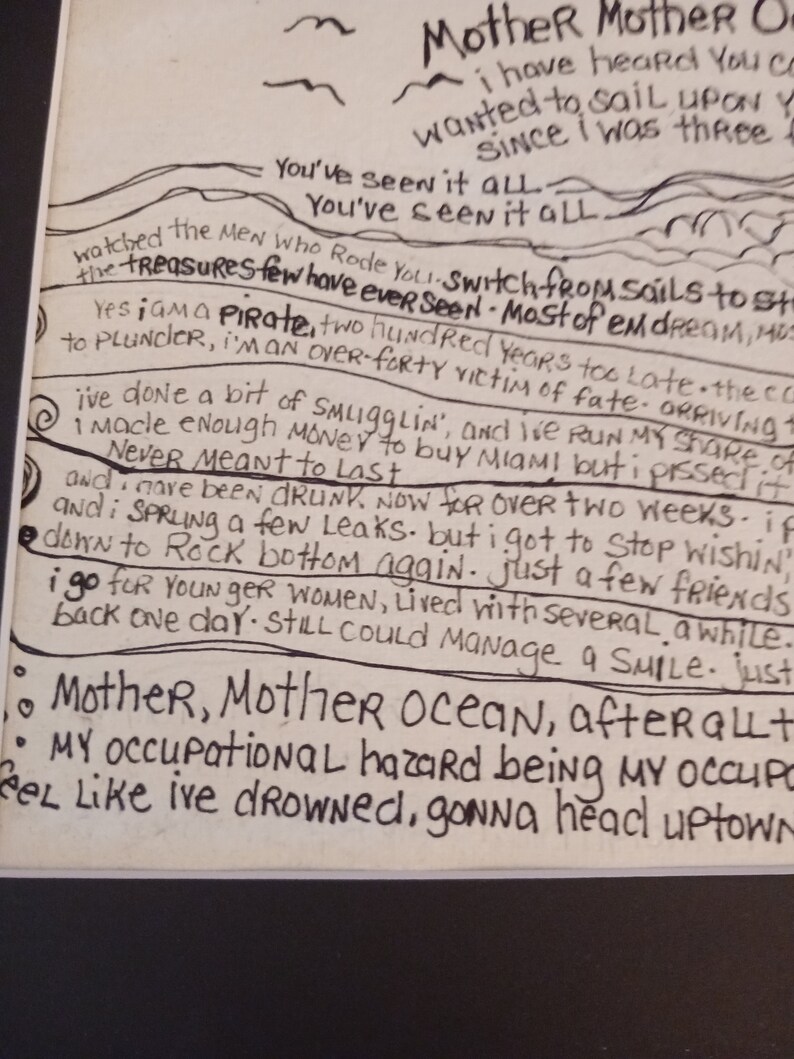 MotheR MotheR O
i have heard You c
wanted to sail upon Y
since i was three
You've seen it all
You've seen it all
watched the Men who Rode You. Switch from sails to st
the treasures few have ever seen. Most of em dream, m
Yes i am a pirate, two hundred Years too late. the c
to plunder, i'm an over-forty victim of fate. arriving t
i've done a bit of smugglin', and i've run my share of
i made enough money to buy Miami but i pissed it
Never meant to last
and i have been drunk now for over two weeks. i p
and i sprung a few leaks. but i got to stop wishin',
down to Rock bottom again. just a few friends
i go for younger women, lived with several awhile.
back one day. still could manage a smile. just
Mother, Mother ocean, after all t
My occupational hazard being my occupa
eel like ive drowned, gonna head uptown